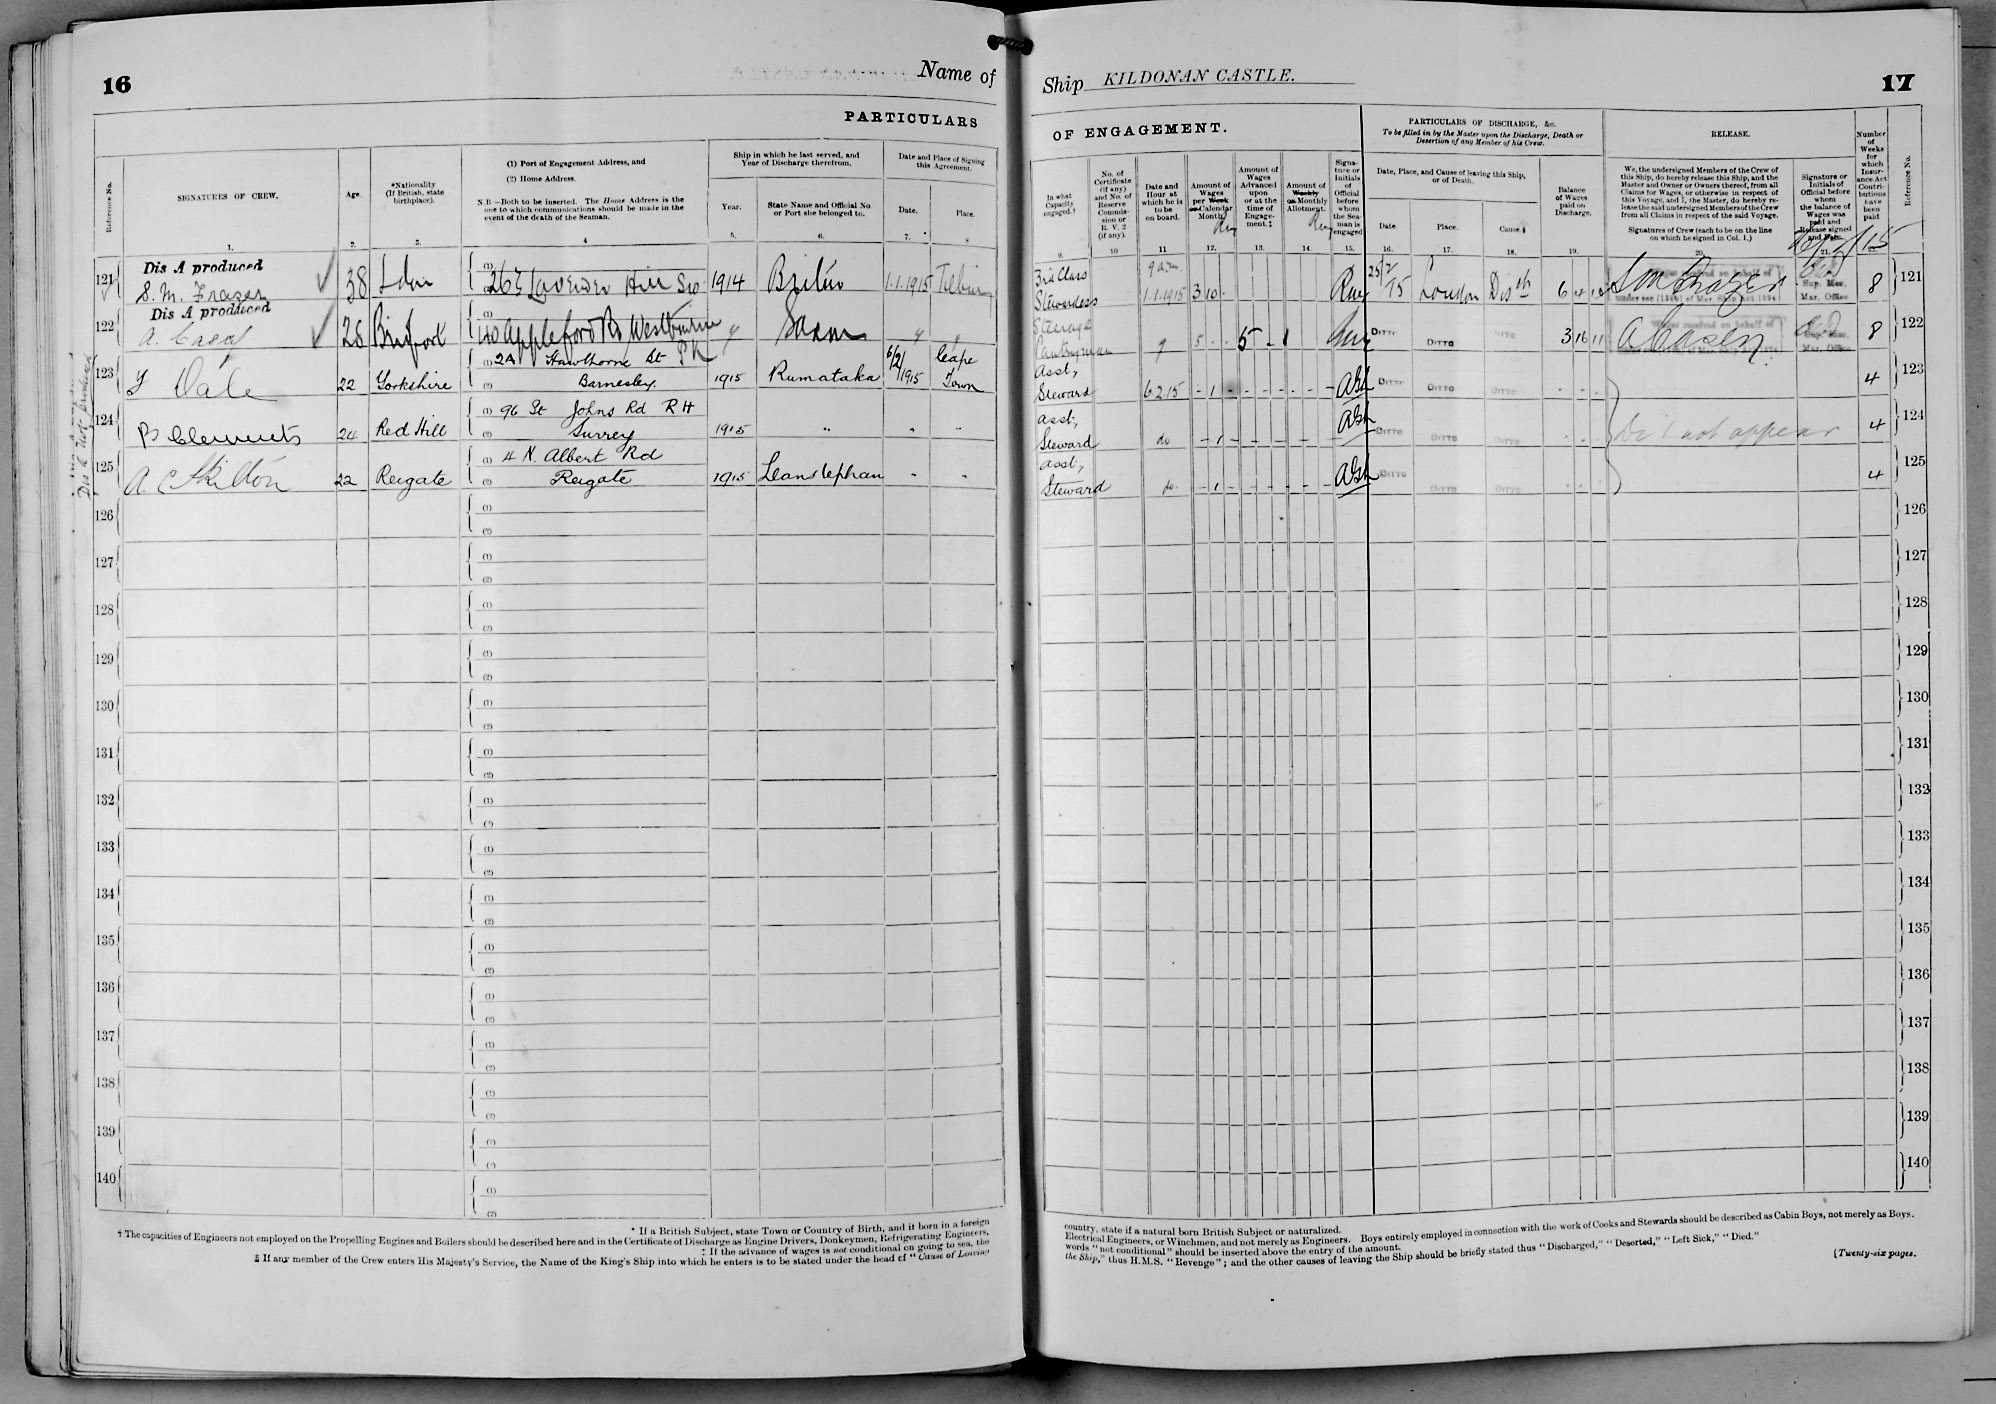 16
Name of
PARTICULARS
Reference No.
SIGNATURES OF CREW.
Age.
*Nationality
(If British, state
birthplace).
(1) Port of Engagement Address, and
(2) Home Address.
N.B.—Both to be inserted. The Home Address is the
one to which communications should be made in the
event of the death of the Seaman.
Ship in which he last served, and
Year of Discharge therefrom.
Year.
State Name and Official No.
or Port she belonged to.
Date and Place of Signing
this Agreement.
Date.
Place.
1. 2. 3. 4 5. 6. 7. 8
121 Dis A produced
S. M. Frazer 38 263 Lavender Hill SW 1914 1.1.1915 Tilbury
122 Dis A produced
28 Appleford Rd Westbourne Pk
123 Y Dale 22 Yorkshire (1) 2A Hawthorne St
(2) Barnesley. 1915 Rumataka 6/2/1915 Cape Town
124 Clements 24 Red Hill (1) 96 St Johns Rd R H
(2) Surrey 1915 " " "
125 A. C Skilton 22 Reigate (1) 4 N. Albert Rd
(2) Reigate 1915 Leanstephan " "
126 (1)
(2)
127 (1)
(2)
128 (1)
(2)
129 (1)
(2)
130 (1)
(2)
131 (1)
(2)
132 (1)
(2)
133 (1)
(2)
134 (1)
(2)
135 (1)
(2)
136 (1)
(2)
137 (1)
(2)
138 (1)
(2)
139 (1)
(2)
140 (1)
(2)
* If a British Subject, state Town or Country of Birth, and if born in a foreign
† The capacities of Engineers not employed on the Propelling Engines and Boilers should be described here and in the Certificate of Discharge as Engine Drivers, Donkeymen, Refrigerating Engineers,
‡ If the advance of wages is not conditional on going to sea, the
§ If any member of the Crew enters His Majesty's Service, the Name of the King's Ship into which he enters is to be stated under the head of "Cause of Leaving
Ship KILDONAN CASTLE.
17
OF ENGAGEMENT.
PARTICULARS OF DISCHARGE, &c.
To be filled in by the Master upon the Discharge, Death or
Desertion of any Member of his Crew.
RELEASE.
Number
of
Weeks
for
which
Insur-
ance Act
Contri-
butions
have
been
paid
Reference No.
In what
Capacity
engaged.†
No. of
Certificate
(if any)
and No. of
Reserve
Commis-
sion or
R. V. 2
(if any).
Date and
Hour at
which he is
to be
on board.
Amount of
Wages
per Week
or Calendar
Month.
Amount of
Wages
Advanced
upon
or at the
time of
Engage-
ment.‡
Amount of
Weekly
or Monthly
Allotment.
Signa-
ture or
Initials
of
Official
before
whom
the Sea-
man is
engaged
Date, Place, and Cause of leaving this Ship,
or of Death.
Date.
Place.
Cause.§
Balance
of Wages
paid on
Discharge.
We, the undersigned Members of the Crew of
this Ship, do hereby release this Ship, and the
Master and Owner or Owners thereof, from all
Claims for Wages, or otherwise in respect of
this Voyage, and I, the Master, do hereby re-
lease the said undersigned Members of the Crew
from all Claims in respect of the said Voyage.
Signatures of Crew (each to be on the line
on which he signed in Col. 1.)
Signature or
Initials of
Official before
whom
the balance of
Wages was
paid and
Release signed
and Date.
9. 10 11 12. 13. 14. 15. 16. 17. 18. 19. 20. 21.
3rd Class
Stewardess 9 a.m. 1.1.1915 3 10 London S M Frazer Sup. Mer. Mar. Office 8 121
Steerage
Pantryman 5 5 DITTO DITTO DITTO 3 16 11 A Casey Mar. Office 8 122
Asst,
Steward 6 2 15 - 1 DITTO DITTO DITTO 4 123
Asst,
Steward do - 1 DITTO DITTO DITTO Did not appear 4 124
Asst,
Steward do - 1 DITTO DITTO DITTO 4 125
126
127
128
129
130
131
132
133
134
135
136
137
138
139
140
country, state if a natural born British Subject or naturalized.
Electrical Engineers, or Winchmen, and not merely as Engineers. Boys entirely employed in connection with the work of Cooks and Stewards should be described as Cabin Boys, not merely as Boys.
words "not conditional" should be inserted above the entry of the amount.
the Ship," thus H.M.S. "Revenge"; and the other causes of leaving the Ship should be briefly stated thus "Discharged," "Deserted," "Left Sick," "Died."
[Twenty-six pages.